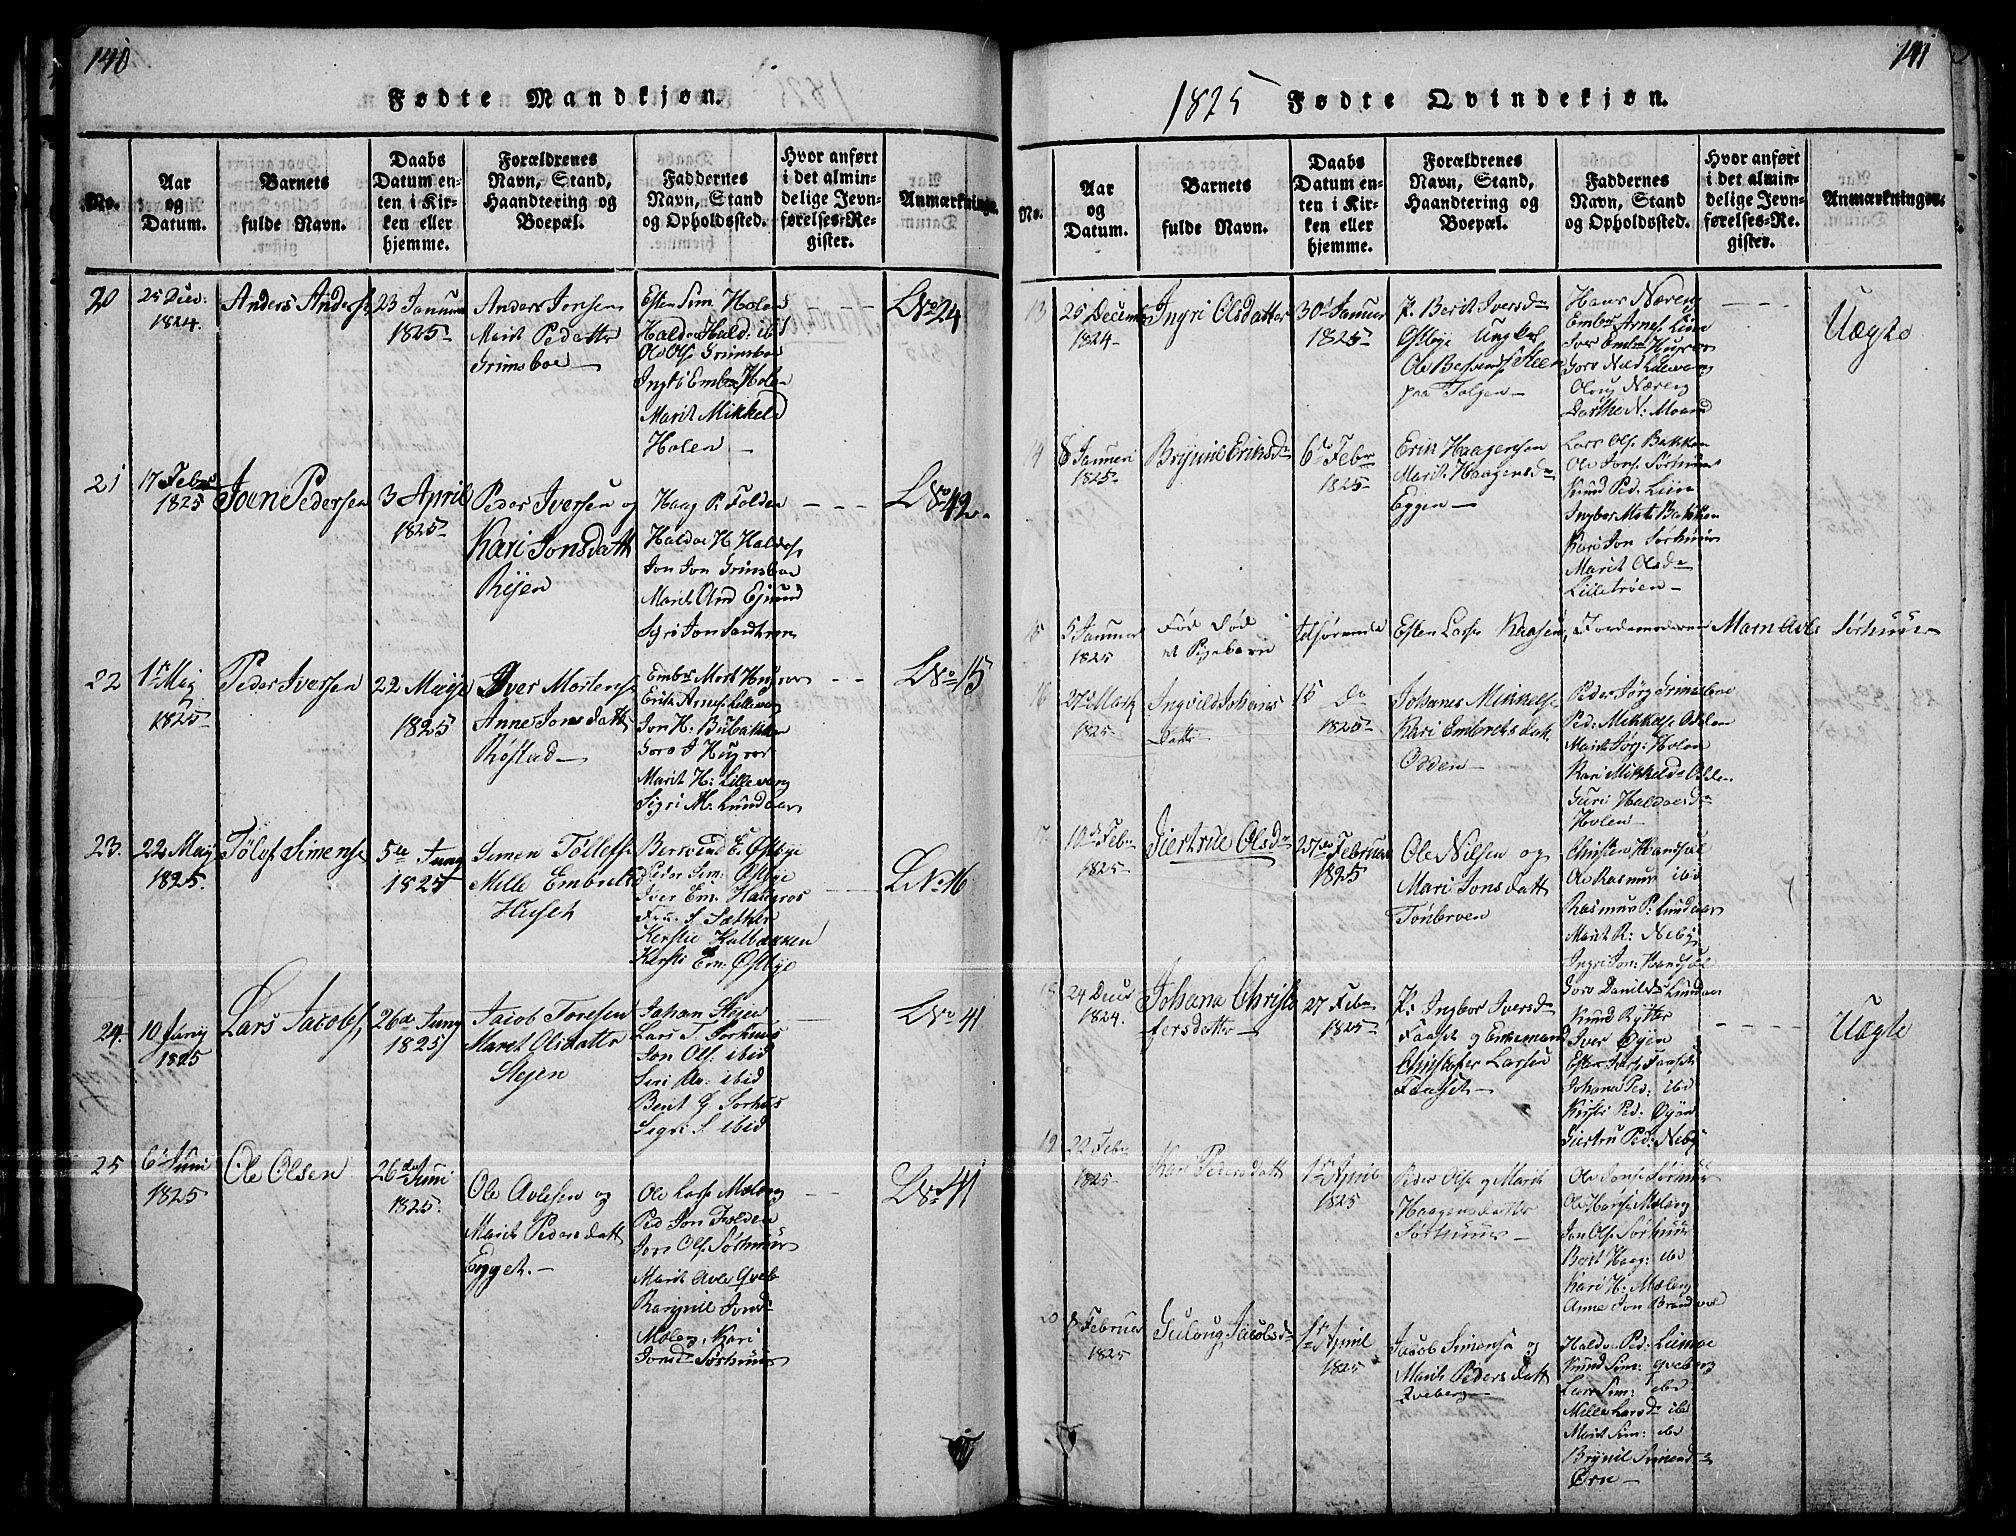 140
Fødte Mandkjøn.
No.
Aar
og
Datum.
Barnets
fulde Navn.
Daabs
Datum en-
ten i Kir-
ken eller
hjemme.
Forældrenes
Navn, Stand,
Haandtering og
Boepæl.
Faddernes
Navn, Stand
og Opholdssted.
Hvor anført
i det almin-
delige Jevn-
førelses-Re-
gister.
Anmærkninger.
20
25 Decr:
1824.
Anders Anders
23 Januar
1825
Anders Jonsen
Marit Pedatter
Grimsboe
Esten Sim. Holen
Haldo Hald: ibid
Ole Ols. Grimsboe
Embr. Holen
Marit Mikkels
Holen
No 24
21
17 Febr
1825
Joen Pedersen
3 April
1825
Peder Iversen og
Kari Jonsdatt
Rijen
Haag P. Folden
Haldoe H. Haldos.
Jon Jon Grimsboe
Marit And
Sigri Jon
No 42
22
1 Maij
1825
Peder Iversen
22 Maij
1825
Iver Mortens.
Anne Jonsdatt
Røstad
Embr Mort Hugros
Erik Arnes. Lillevang
Jon H. Bubakken
Goro J. Hugros
Marit H: Lillevang
Sigri M: Lundaas
No 15
23.
22 Maij
1825.
Tølof Simens.
5te Junij
1825
Simen Tøllefs.
Mille Embrets
Huset
Bersvend E. Østbye
Peder Sim: Østbye
Iver Em. Haugros
S. Sæther
Kerstie Kalbækken
Kersti Em: Østbye
L No 16
24.
10 Junij
1825
Lars Jacobs.
26d Junij
1825
Jacob Toresen
Maret Olsdatter
Stejen
Johan Stejen
Lars T. Sørhuus
Jon Ols. ibid
Siri ibid
Berit G. Sørhuus
Sigri S. ibid
No 41
25
6 Juni
1825
Ole Olsen
26de Juni
1825.
Ole Avlesen og
Marit Pedersdatt
Egget.
Ole Lars. Moberg
Ped Jon Folden
Jon Ols. Sørhuus
Marit Avle Qveb
Ragnil Jonsd
Kari
Jonsd Sørhuus
No 41
141
1825 Fødte Qvindekjøn.
No.
Aar
og
Datum.
Barnets
fulde Navn.
Daabs
Datum en-
ten i Kir-
ken eller
hjemme.
Forældrenes
Navn, Stand,
Haandtering og
Boepæl.
Faddernes
Navn, Stand
og Opholdssted.
Hvor anført
i det almin-
delige Jevn-
førelses-Re-
gister.
Anmærkninger.
13
25 December
1824
Ingri Olsdatter
30 Januar
1825
P. Berit Iversd
Østbye Ungkal
Ole Steen
paa Tolgen
Hans Næreng
Embr Arnes. Liim
Iver Embr Hugros
Goro Lillevang
Olaug Næreng
Dorthe N: Moen
Uægte
14
8 Januari
1825
Brynil Eriksd
6 Febr
1825
Erik Haagensen
Marit Haagensd
Eggen
Lars Ols. Bakken
Ole Jons. Sørhuus
Knud Ped. Liim
Ingber Mort. Bakken
Kari Jon Sørhuus
Marit Olsd
Lilletrøen
15
5 Januar
1825
Fød død
et Pigebarn
Esten Lars. Kaasen
Jordemoderen Marn Avle Sørhuus
16
27 Mart
1825
Ingvild Johanes
Datt
15 do
1825
Johanes Mikkels.
Kari Embretsdatt.
Odden
Peder Jørg Grimsboe
Ped: Mikkels. Odden
Marit Jørg: Holen
Kari Mikkelsd Odden
Guri Haldoesd
Holen
17
10 Febr
1825
Giertrue Olsd
27de Februar
1825
Ole Nilsen og
Mari Jonsdatt
Tønbroen
Christen Haandsæl
Ole Rasmus ibid
Rasmus P: Lundaas
Marit R: Nebij
Ingri Jon:
Goro Danilsd Lundaas
18
24 Decr
1824.
Johana Christo
fersdatter
27 Febr
1825
P: Ingbor Iversd
Faaset og Enkemand
Christofer Larsen
Faaset
Knud Rytter
Iver Øyen
Esten Lars. Faaset
Johana Ped: ibd
Kirsti Ped: Øyen
Giertru Ped: Nebij
Uægte
19
22 Febr
1825
Kari Pedersdatt
1 April
1825
Peder Ols. og Marit
Haagensdatter
Sørhuus
Ole Jons. Sørhuus
Ole Hans. Moberg
Jon Ols. Sørhuus
Berit Haag: ibd
Kari H. Moberg
Anne Jon Brandvol
20
8 Februar
1825
Gulaug Jacobsd
1 April
1825
Jacob Simensen og
Marit Pedersdatt
Qveberg
Haldo Ped: Liimoe
Knud Sim: Qveberg
Lars Sim: ibd
Mille Larsd ibd
Marit Sim: ibd
Brynil Simensd
Øien